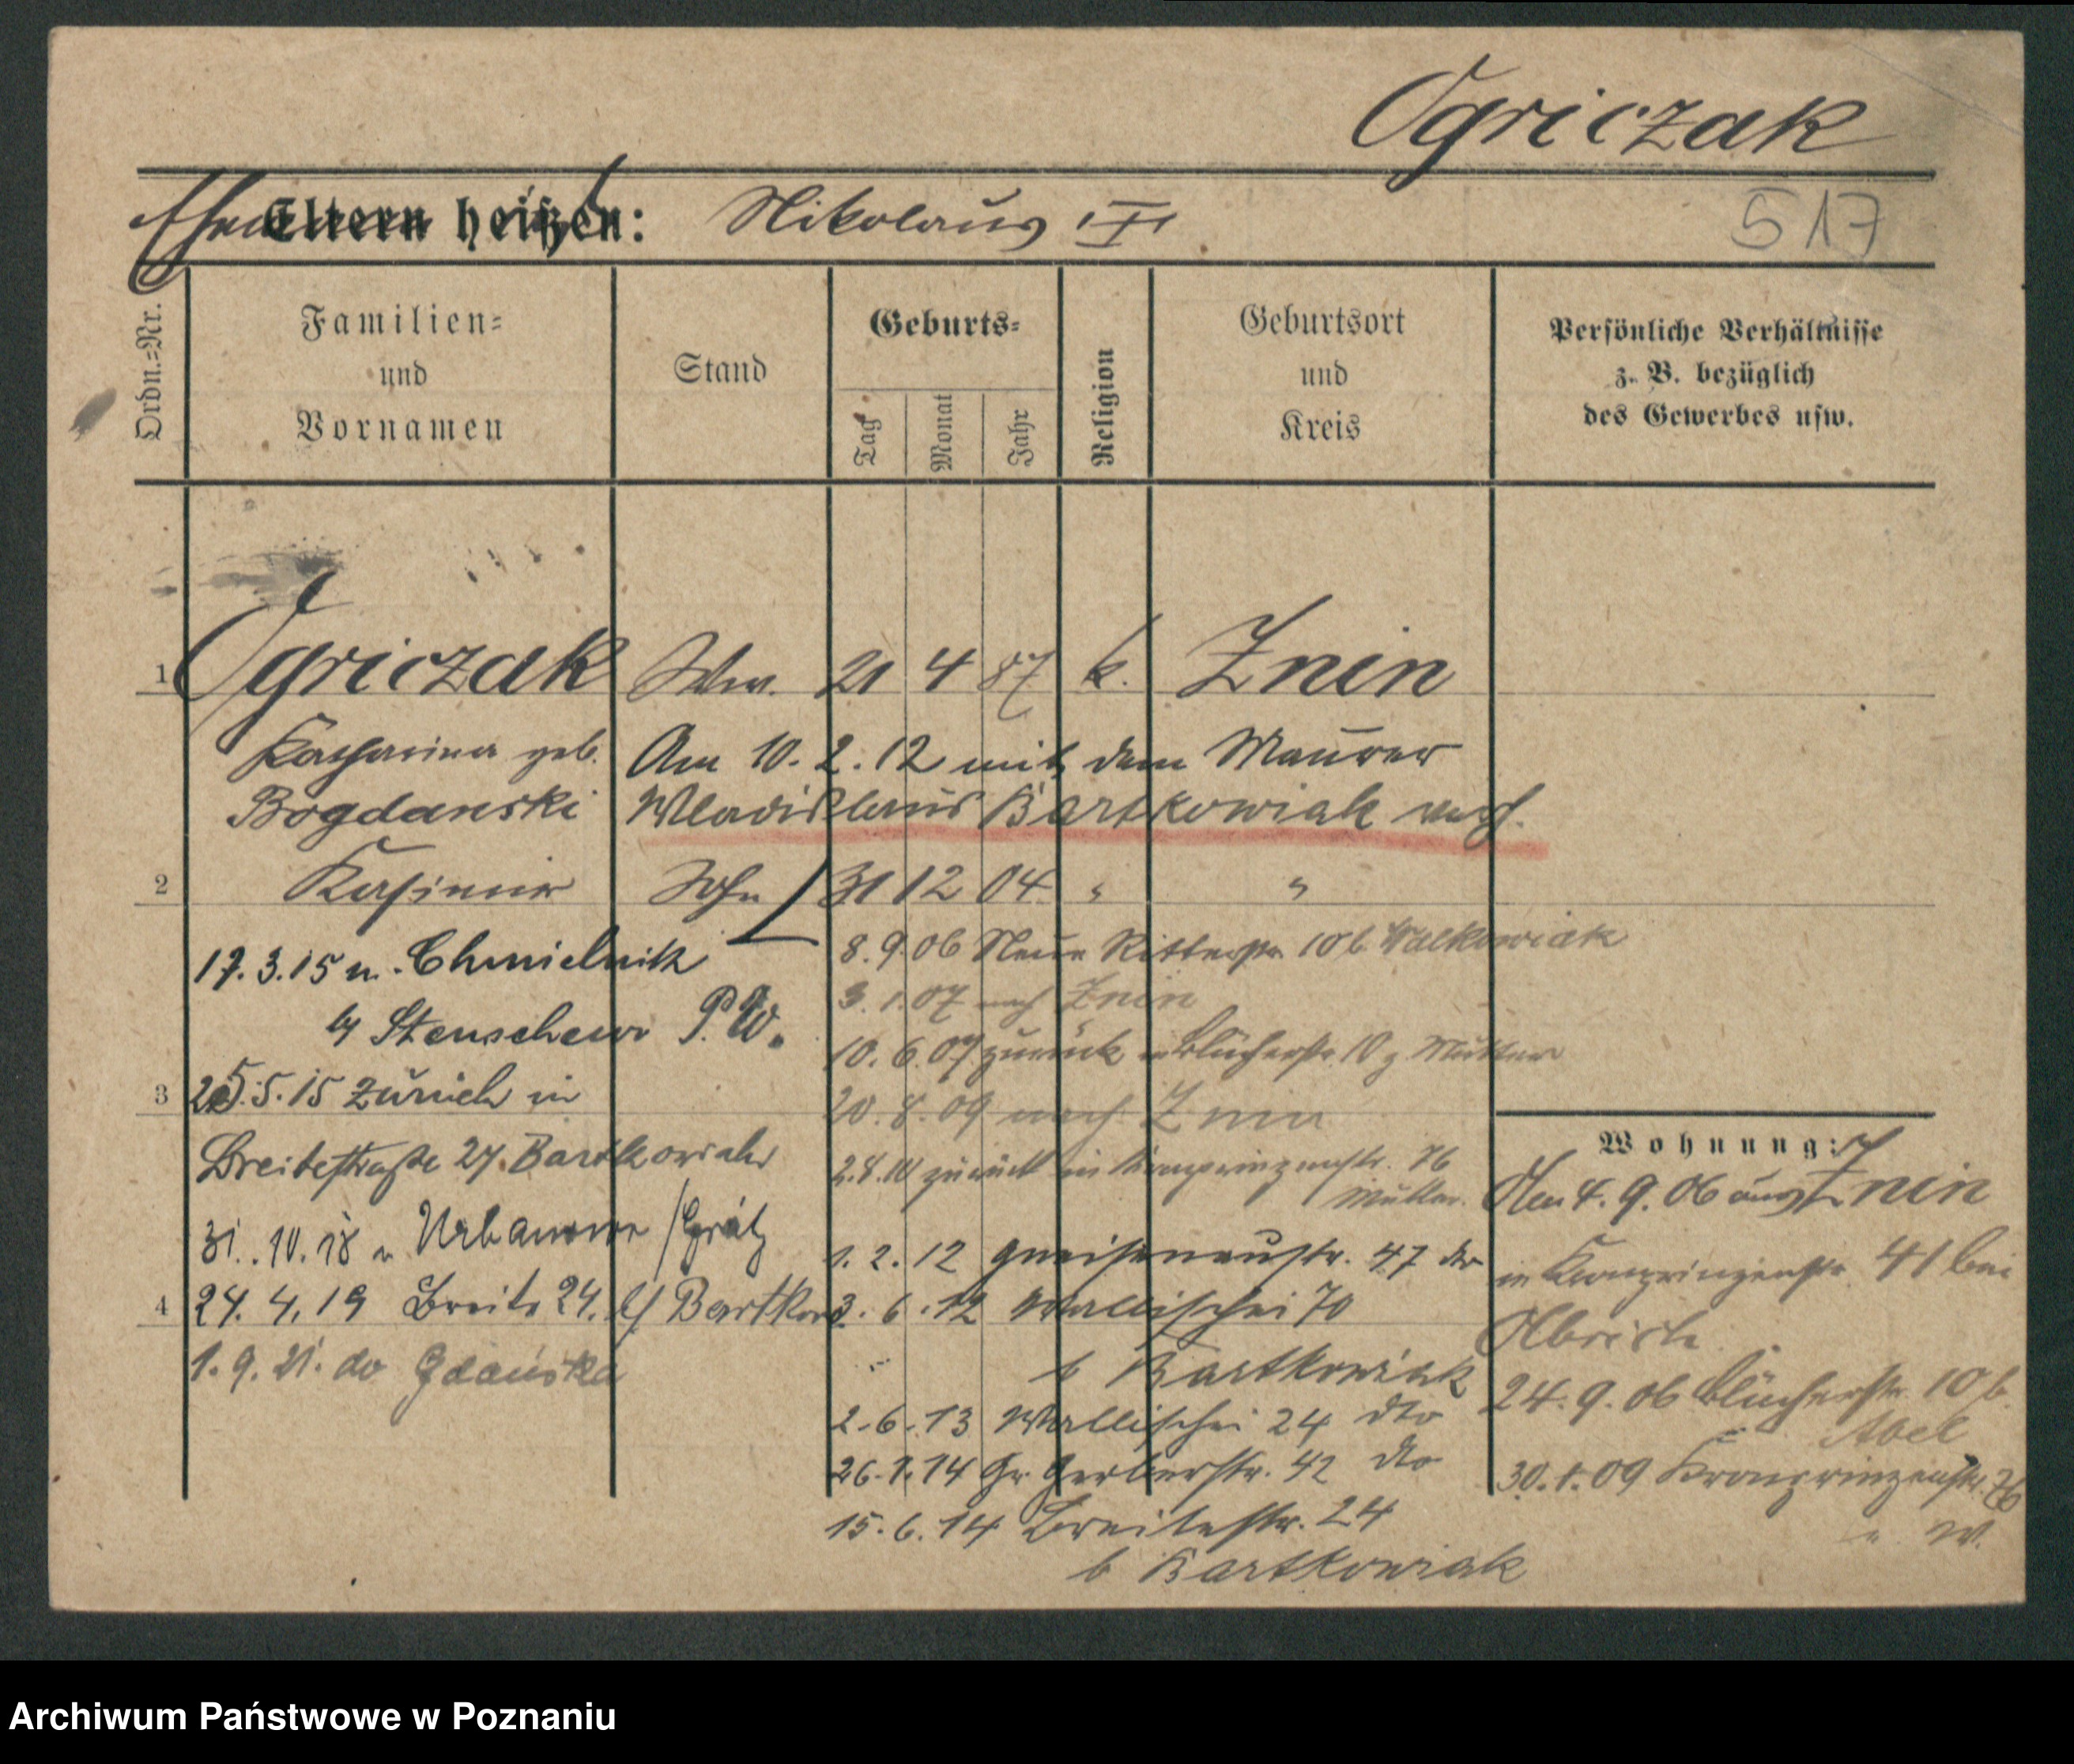 Ogriczak
Eltern heißen: Nikolaus
517
Ordn.-Nr.
Familien-
und
Vornamen
Stand
Geburts-
Tag
Monat
Jahr
Religion
Geburtsort
und
Kreis
Persönliche Verhältnisse
z. B. bezüglich
des Gewerbes usw.
1 Ogriczak Ww. 21 4 87 k. Znin
Katharina geb.
Bogdanski
Am 10. 2. 12 mit dem Maurer
Wladislaus Bartkowiak verh.
2 Kasimir Sohn 31 12 04 " "
17. 3. 15 n. Chmielnik
by Stenschewo P. W.
3
25. 5. 15 zurück in
Breitestraße 24. Bartkowiak
31. 10. 18 n Urbanowo / Grätz
4
24. 4. 19 Breite 24. b/ Bartkow
1. 9. 21. do Gdańska
8. 9. 06 Neue Ritterstr. 10 b. Walkowiak
3. 1. 07 nach Znin
10. 6. 07 zurück Blücherstr. 10 z Mutter
20. 8. 09 nach Znin
2. 8. 10 zurück in Kronprinzenstr. 76
Mutter.
1. 2. 12 Gneisenaustr. 47 dto
3. 6. 12 Wallischei 70
b Bartkowiak
2. 6. 13 Wallischei 24 dto
26. 1. 14 Gr. Gerberstr. 42 dto
15. 6. 14 Breitestr. 24
b Bartkowiak
Wohnung:
Den 4. 9. 06 aus Znin
in Kronprinzenstr. 41 bei
Olbrich
24. 9. 06 Blücherstr. 10 b.
Abel
30. 1. 09 Kronprinzenstr. 76
" W.
Archiwum Państwowe w Poznaniu